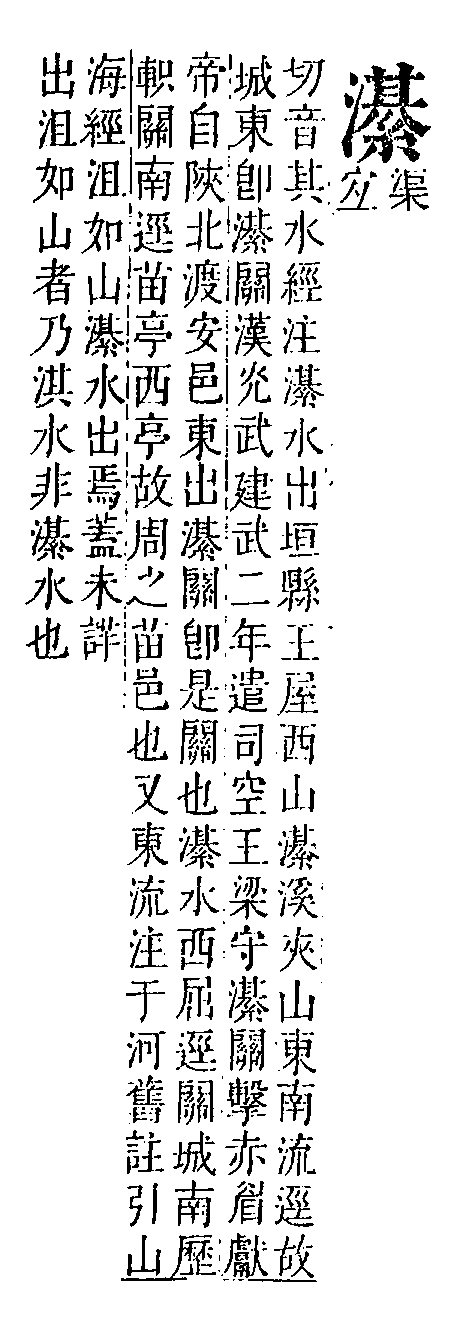 濝
渠
宜
切音其水經注濝水出垣縣王屋西山濝溪夾山東南流逕故
城東卽濝關漢光武建武二年遣司空王梁守濝關擊赤眉獻
帝自陝北渡安邑東出濝關卽是關也濝水西屈逕關城南歷
軹關南逕苗亭西亭故周之苗邑也又東流注于河舊註引山
海經沮如山濝水出焉蓋未詳
出沮如山者乃淇水非濝水也